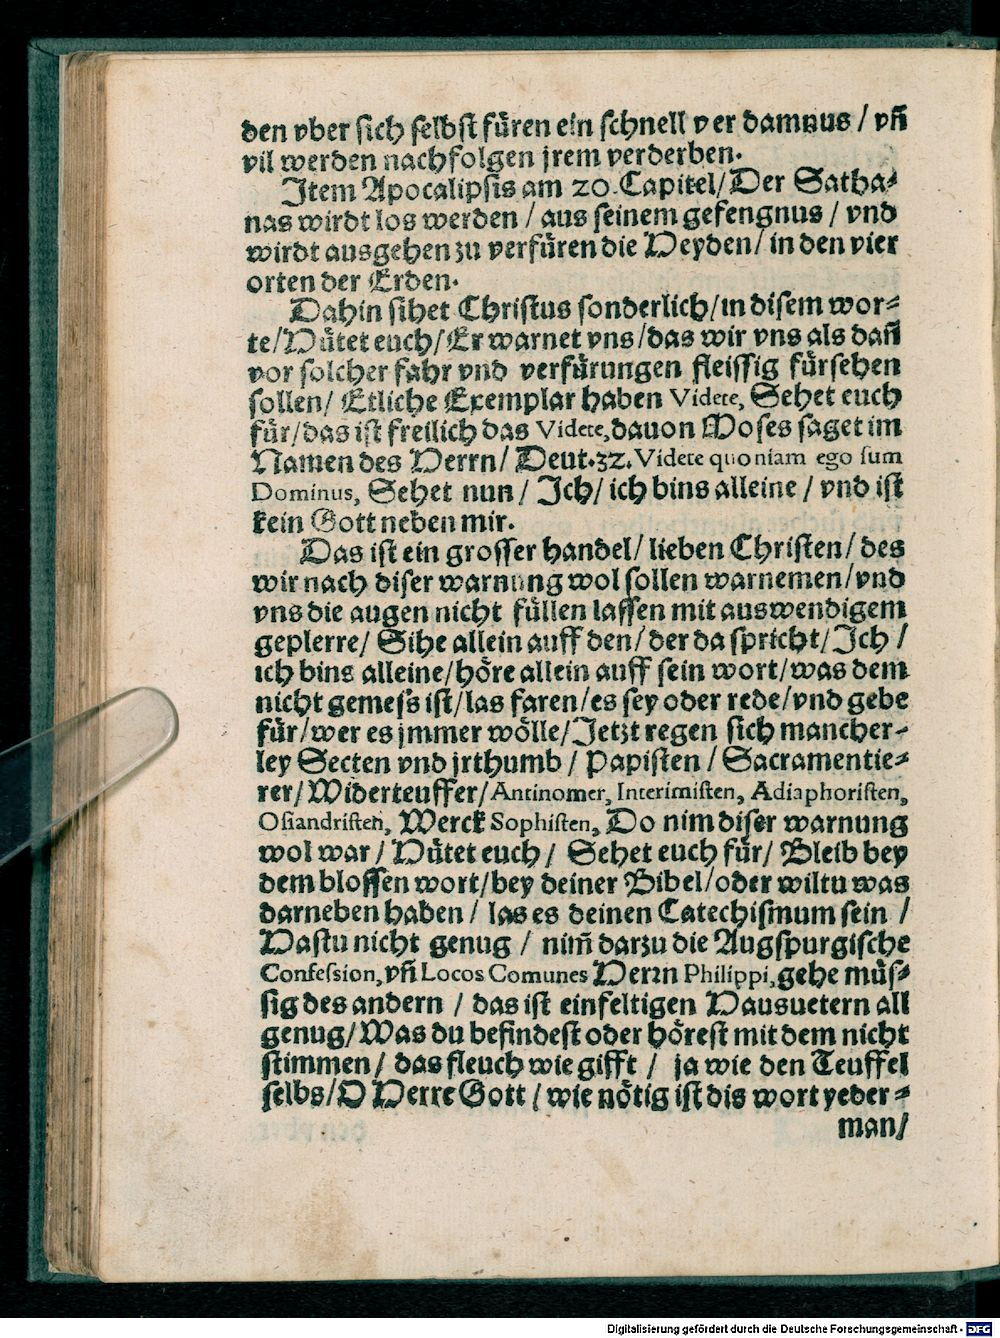 den vber sich selbst füren ein schnell ver damnus / vñ
vil werden nachfolgen jrem verderben.
Item Apocalipsis am 20. Capitel / Der Satha-
nas wirdt los werden / aus seinem gefengnus / vnd
wirdt ausgehen zu verfüren die Heyden / in den vier
orten der Erden.
Dahin sihet Christus sonderlich / in disem wor-
te / Hütet euch / Er warnet vns / das wir vns als dañ
vor solcher fahr vnd verfürungen fleissig fürsehen
sollen / Etliche Exemplar haben Videte, Sehet euch
für / das ist freilich das Videte, dauon Moses saget im
Namen des Herrn / Deut. 32. Videte quoniam ego sum
Dominus, Sehet nun / Ich / ich bins alleine / vnd ist
kein Gott neben mir.
Das ist ein grosser handel / lieben Christen / des
wir nach diser warnung wol sollen warnemen / vnd
vns die augen nicht füllen lassen mit auswendigem
geplerre / Sihe allein auff den / der da spricht / Ich /
ich bins alleine / höre allein auff sein wort / was dem
nicht gemess ist / las faren / es sey oder rede / vnd gebe
für / wer es jmmer wölle / Jetzt regen sich mancher-
ley Secten vnd jrthumb / Papisten / Sacramentie-
rer / Widerteuffer / Antinomer, Interimisten, Adiaphoristen,
Osiandristen, Werck Sophisten, Do nim diser warnung
wol war / Hütet euch / Sehet euch für / Bleib bey
dem blossen wort / bey deiner Bibel / oder wiltu was
darneben haben / las es deinen Catechismum sein /
Hastu nicht genug / nim̃ darzu die Augspurgische
Confession, vñ Locos Comunes Herrn Philippi, gehe müs-
sig des andern / das ist einfeltigen Hausuetern all
genug / Was du befindest oder hörest mit dem nicht
stimmen / das fleuch wie gifft / ja wie den Teuffel
selbs / O Herre Gott / wie nötig ist dis wort yeder-
man /
Digitalisierung gefördert durch die Deutsche Forschungsgemeinschaft - DFG